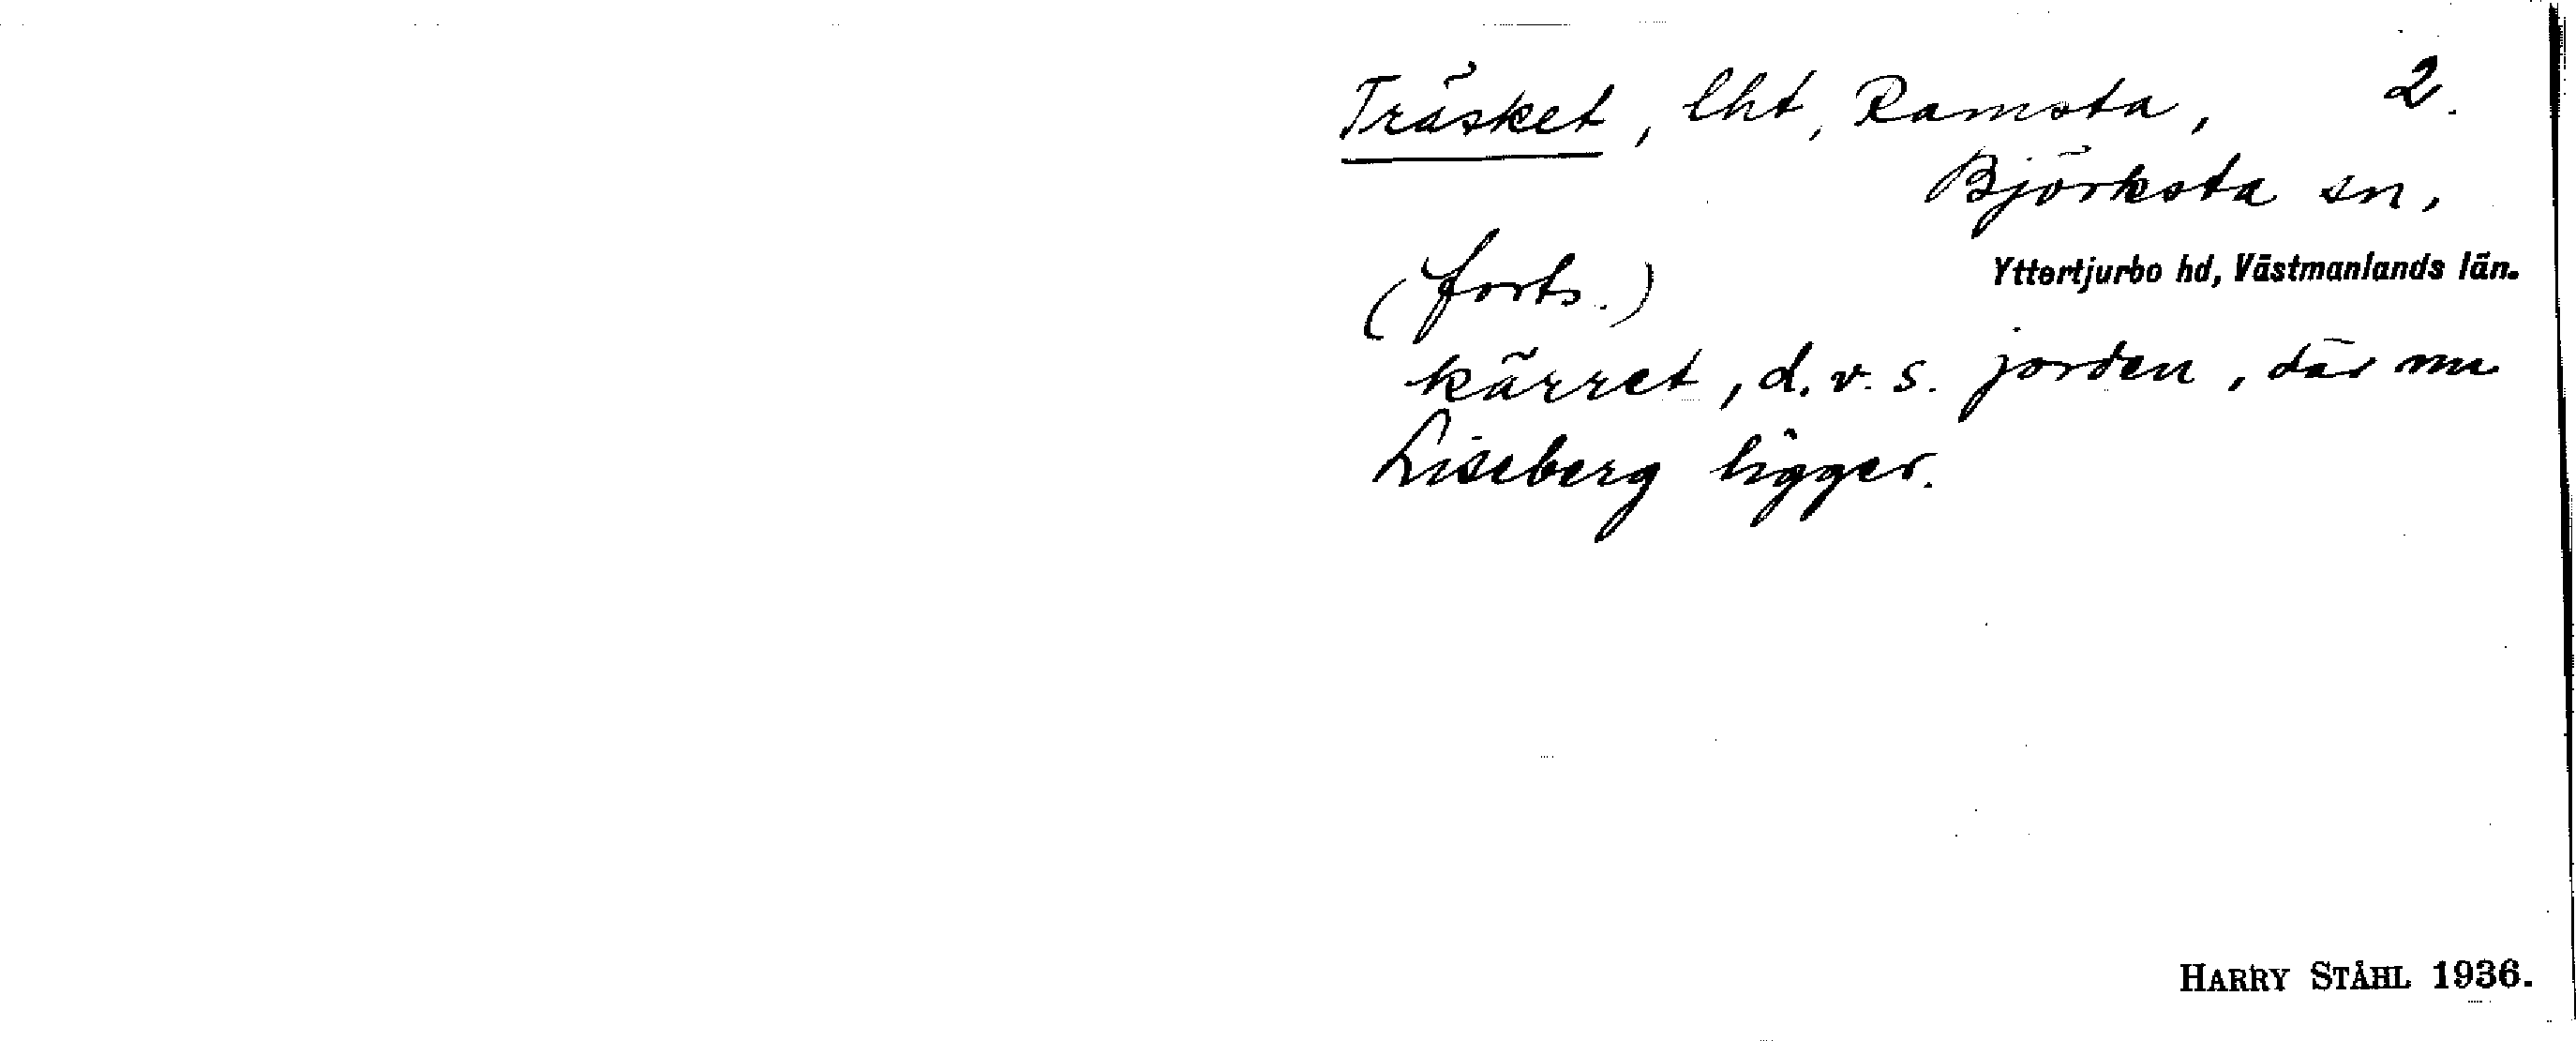 Träsket, lht, Ramsta, 2.
Björksta sn,
Yttertjurbo hd, Västmanlands län.
(forts.)
kärret, d.v.s. jorden, där nu
Liseberg ligger.
HARRY STÅHL 1936.